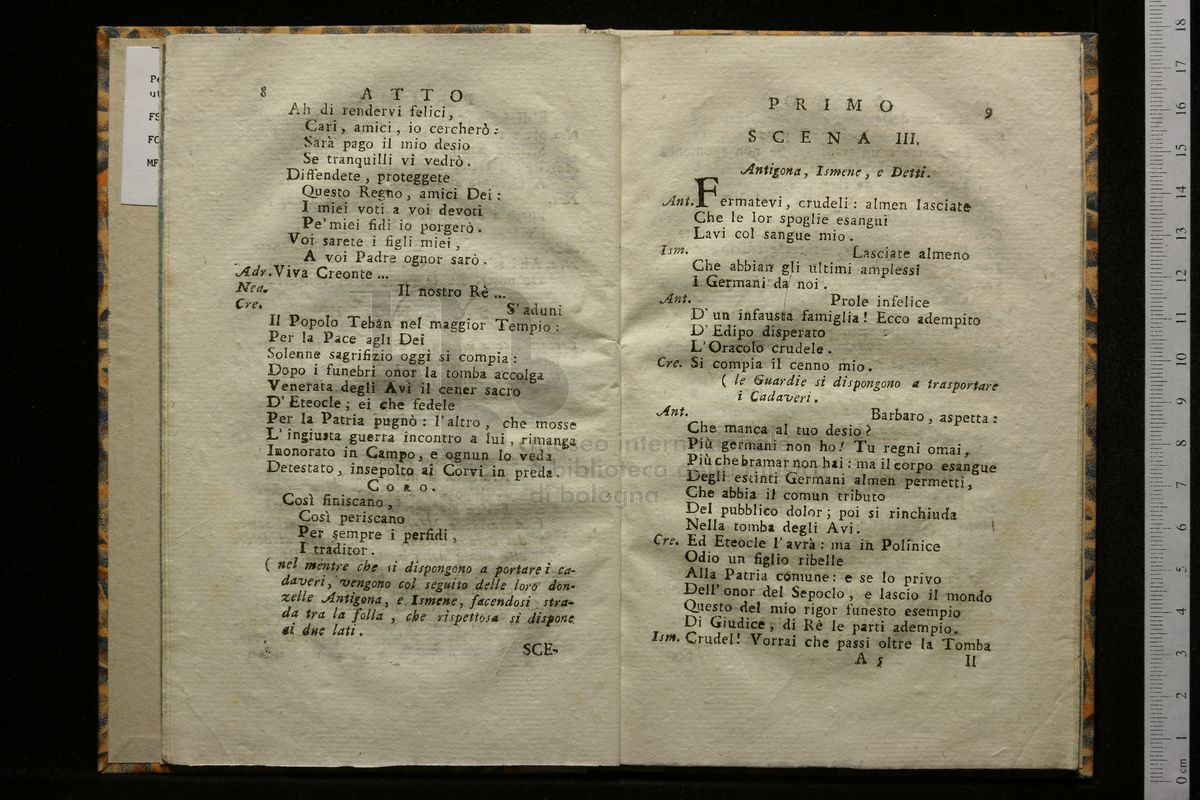 8
ATTO
Ah di rendervi felici,
Cari, amici, io cercherò:
Sarà pago il mio desio
Se tranquilli vi vedrò.
Diffendete, proteggete
Questo Regno, amici Dei:
I miei voti a voi devoti
Pe' miei fidi io porgerò.
Voi sarete i figli miei,
A voi Padre ognor sarò.
Adr. Viva Creonte ...
Nea. Il nostro Rè ...
Cre. S' aduni
Il Popolo Tebàn nel maggior Tempio:
Per la Pace agli Dei
Solenne sagrifizio oggi si compia:
Dopo i funebri onor la tomba accolga
Venerata degli Avi il cener sacro
D' Eteocle; ei che fedele
Per la Patria pugnò: l'altro, che mosse
L' ingiusta guerra incontro a lui, rimanga
Inonorato in Campo, e ognun lo veda
Detestato, insepolto ai Corvi in preda.
CORO.
Così finiscano,
Così periscano
Per sempre i perfidi,
I traditor.
( nel mentre che si dispongono a portare i ca-
daveri, vengono col seguito delle loro don-
zelle Antigona, e Ismene, facendosi stra-
da tra la folla, che rispettosa si dispone
ai due lati.
SCE-
PRIMO
9
SCENA III.
Antigona, Ismene, e Detti.
Ant. Fermatevi, crudeli: almen lasciate
Che le lor spoglie esangui
Lavi col sangue mio.
Ism. Lasciate almeno
Che abbian gli ultimi amplessi
I Germani da noi.
Ant. Prole infelice
D' un infausta famiglia! Ecco adempito
D' Edipo disperato
L' Oracolo crudele.
Cre. Si compia il cenno mio.
( le Guardie si dispongono a trasportare
i Cadaveri.
Ant. Barbaro, aspetta:
Che manca al tuo desio?
Più germani non ho! Tu regni omai,
Più che bramar non hai: ma il corpo esangue
Degli estinti Germani almen permetti,
Che abbia il comun tributo
Del pubblico dolor; poi si rinchiuda
Nella tomba degli Avi.
Cre. Ed Eteocle l' avrà: ma in Polînice
Odio un figlio ribelle
Alla Patria comune: e se lo privo
Dell' onor del Sepoclo, e lascio il mondo
Questo del mio rigor funesto esempio
Di Giudice, di Rè le parti adempio.
Ism. Crudel! Vorrai che passi oltre la Tomba
A 5
Il
museo
biblioteca
di bologna
FS
FC
MF
0 cm 1 2 3 4 5 6 7 8 9 10 11 12 13 14 15 16 17 18